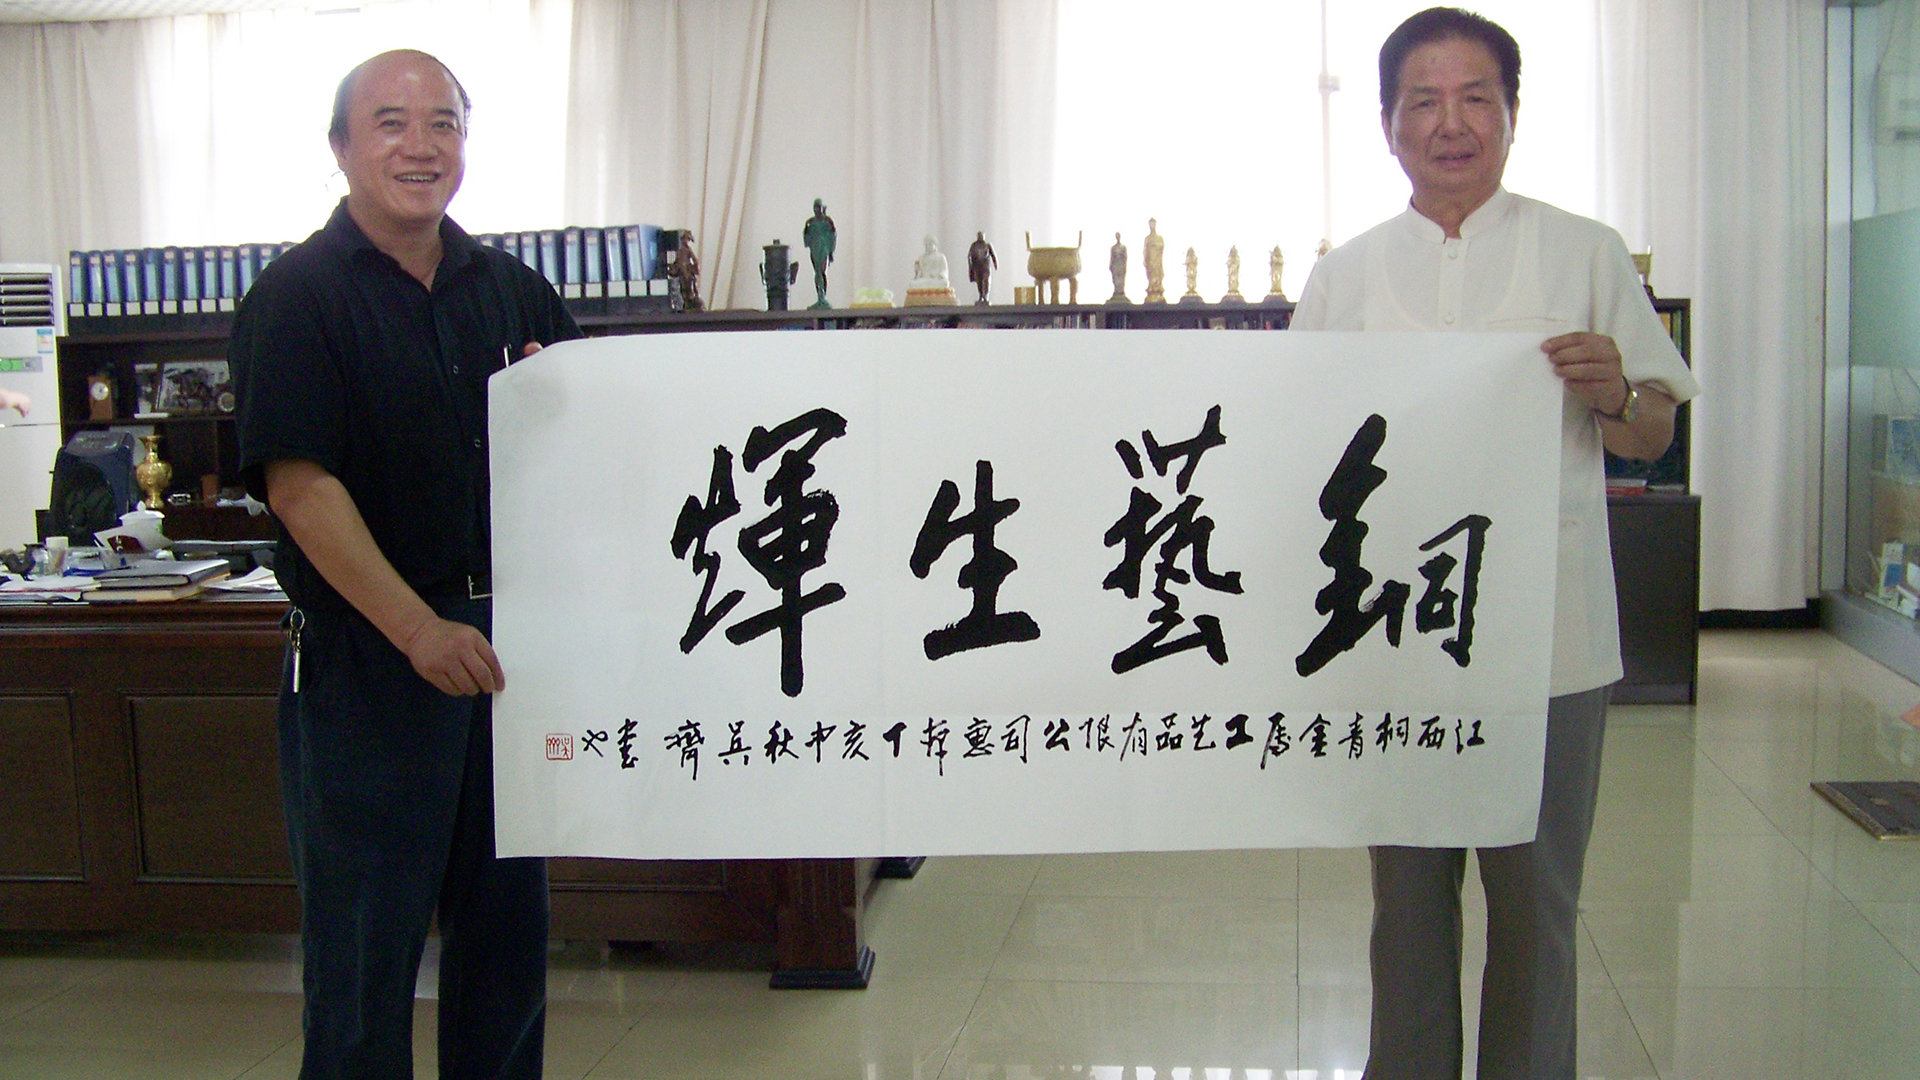 銅藝生輝
江西桐青金属工艺品有限公司惠存丁亥中秋吴齊書也